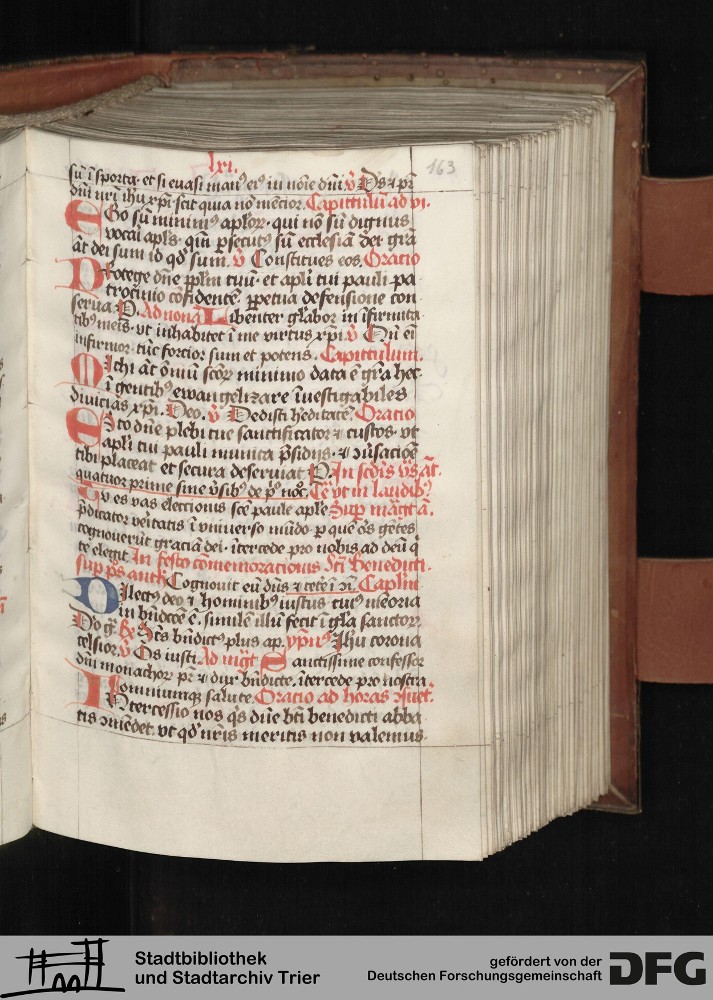 lxi.
163
sū ī sporta· et si euasi manꝰ eiꝰ in noīe dn̄i ꝟ Ds̄ ⁊ pr̄
dn̄i nr̄i ihū xp̄i scit quia nō mēcior. Capittulū ad vi.
Ego sū minimꝰ aplor̄· qui nō sū dignus
vocari apls̄· qm̄ ꝑsecutꝰ sū ecclesiā dei gr̄a
āt dei sum id qd̄ sum. ꝟ Constitues eos. Oracio
Protege dn̄e pplm̄ tuū· et apl̄i tui pauli pa
trocinio cōfidentē· ꝑpetua defensione con
serua. P. Ad nonā Libenter gl̄abor in īfirmita
tibꝰ meis· vt inhabitet ī me virtus xp̄i. ꝟ Cū eī
infirmor· tūc forcior sum et potens. Capittulum.
Michi āt ōniū sc̄or̄ minimo data ē gr̄a hec·
ī gentibꝰ ewangelizare īuestigabiles
diuicias xp̄i. Deo. ꝟ Dedisti h̓editatē. Oracio
Esto dn̄e plebi tue sanctificator ⁊ custos· vt
apl̄i tui pauli munita p̄sidijs· ⁊ ꝯuersacioē
tibi placeat et secura deseruiat P In sc̄dis vs̄ āt.
quatuor prime sine ꝟsibꝰ de pͦ noc̄. Cet̄ vt in laudibꝰ
Tu es vas eleccionis sc̄e paule aplē Sup̄ māgt̄ ā.
p̄dicator veritatis ī vniuerso mūdo· ꝑ quē oēs gētes
cognouerūt graciā dei· ītercede pro nobis ad deū q̄
te elegit In festo cōmemoracionis Sct̄i Benedicti.
sup̄ ps̄ anth̄ Cognouit eū dn̄s ⁊ cete ī n̄. Caplm̄
Dilectꝰ deo ⁊ hominibꝰ iustus cuiꝰ memoria
in bn̄dcc̄oe ē. similē illū fecit ī gl̄a sanctor̄.
Deo gr̄. R Sct̄s bn̄dictꝰ plus ap. ypn̄ꝰ Jhū corona
celsior. ꝟ Os iusti Ad māgt̄ Sanctissime confessor
dn̄i monachor̄ pr̄ ⁊ dux bn̄dicte. ītercede pro nostra
omniumqꝫ salute. Oracio ad horas ꝯuet.
Intercessio nos qs̄ dn̄e bt̄i benedicti abba
tis ꝯmēdet. vt qd̄ nr̄is meritis non valemus
Stadtbibliothek
und Stadtarchiv Trier
gefördert von der
Deutschen Forschungsgemeinschaft
DFG